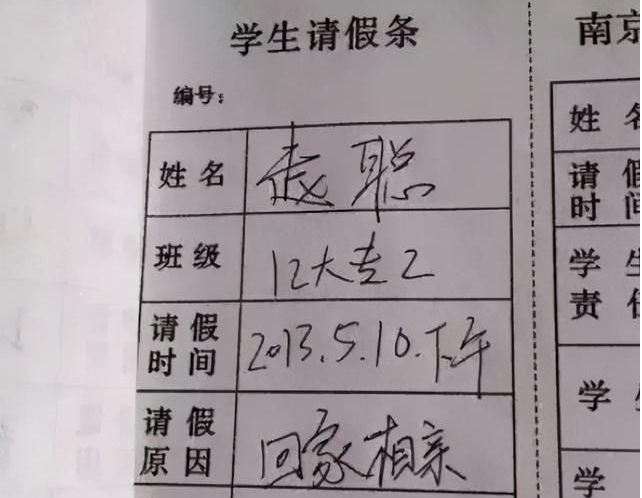 学生请假条
南京
编号：
姓名 聪
姓名
班级 12大专2
请假时间 2013.5.10.下午
请假
时间
学生
责任
请假原因 回家相亲
学
学